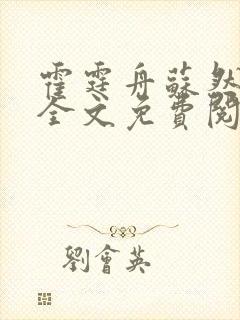 霍霆舟蘇然
全文免費閱
劉會英